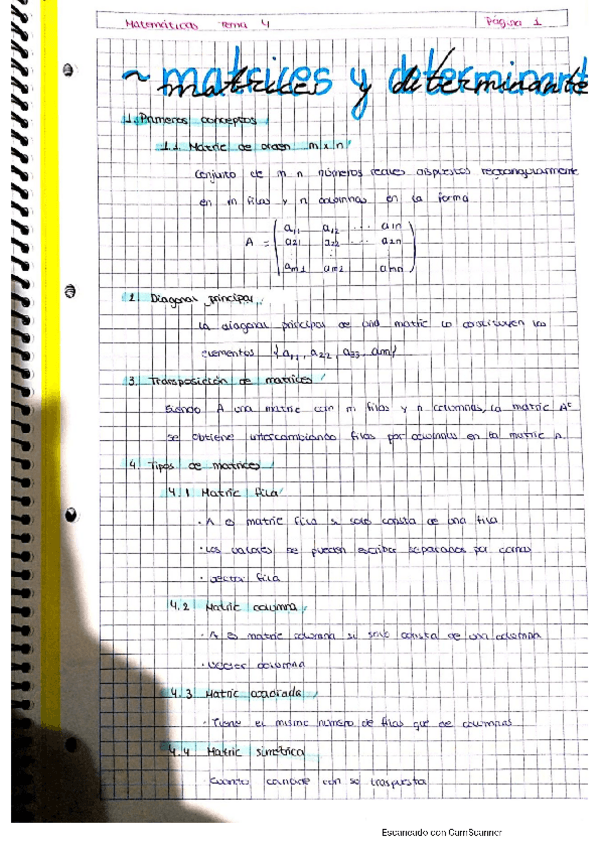 Matemáticas Tema 4 Página 1
~ matrices y determinante
1. Primeros conceptos
1.1. Matriz de orden m x n
Conjunto de m n números reales dispuestos rectangularmente
en m filas y n columnas en la forma
A = ( a11 a12 ... a1n
a21 a22 ... a2n
⋮
am1 am2 amn )
2. Diagonal principal
La diagonal principal de una matriz la constituyen los
elementos {a11, a22, a33, amn}
3. Transposición de matrices
Siendo A una matriz con m filas y n columnas, la matriz Aᵗ
se obtiene intercambiando filas por columnas en la matriz A.
4. Tipos de matrices
4.1 Matriz fila
· A es matriz fila si solo consta de una fila
· Los valores se pueden escribir separados por comas
· vector fila
4.2 Matriz columna
· A es matriz columna si solo consta de una columna
· vector columna
4.3 Matriz cuadrada
· Tiene el mismo número de filas que de columnas
4.4 Matriz simétrica
Cuando coincide con su traspuesta
Escaneado con CamScanner